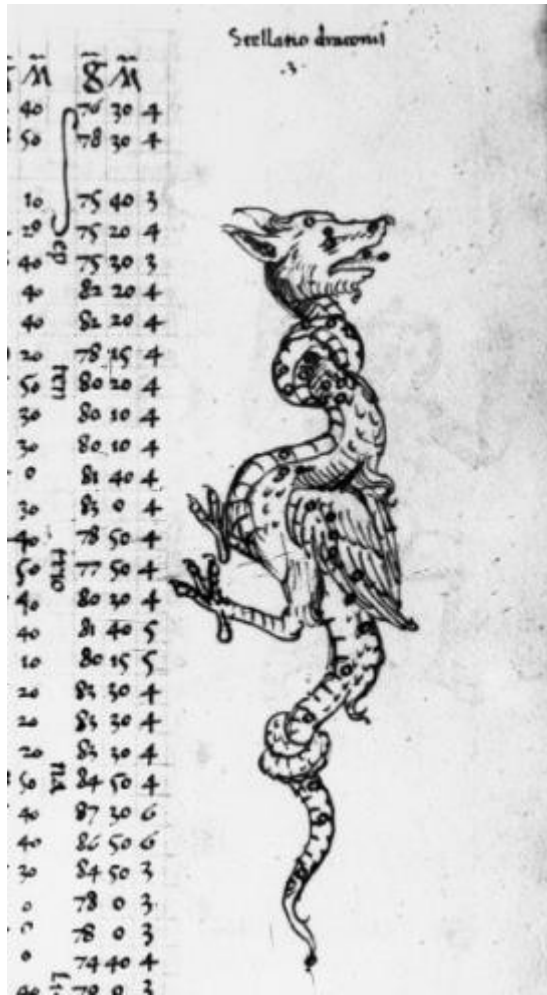 Stellatio draconis
·3·
M̄ Ḡ M̄
40 76 30 4
50 78 30 4
10 75 40 3
20 Sep 75 20 4
40 75 30 3
40 82 20 4
40 82 20 4
20 78 15 4
50 ten 80 20 4
30 80 10 4
30 80 10 4
0 81 40 4
30 83 0 4
40 78 50 4
50 trio 77 50 4
40 80 30 4
40 81 40 5
10 80 15 5
20 83 30 4
20 83 30 4
20 83 30 4
50 na 84 50 4
40 87 30 6
40 86 50 6
30 84 50 3
0 78 0 3
0 78 0 3
0 74 40 4
40 li 79 0 3